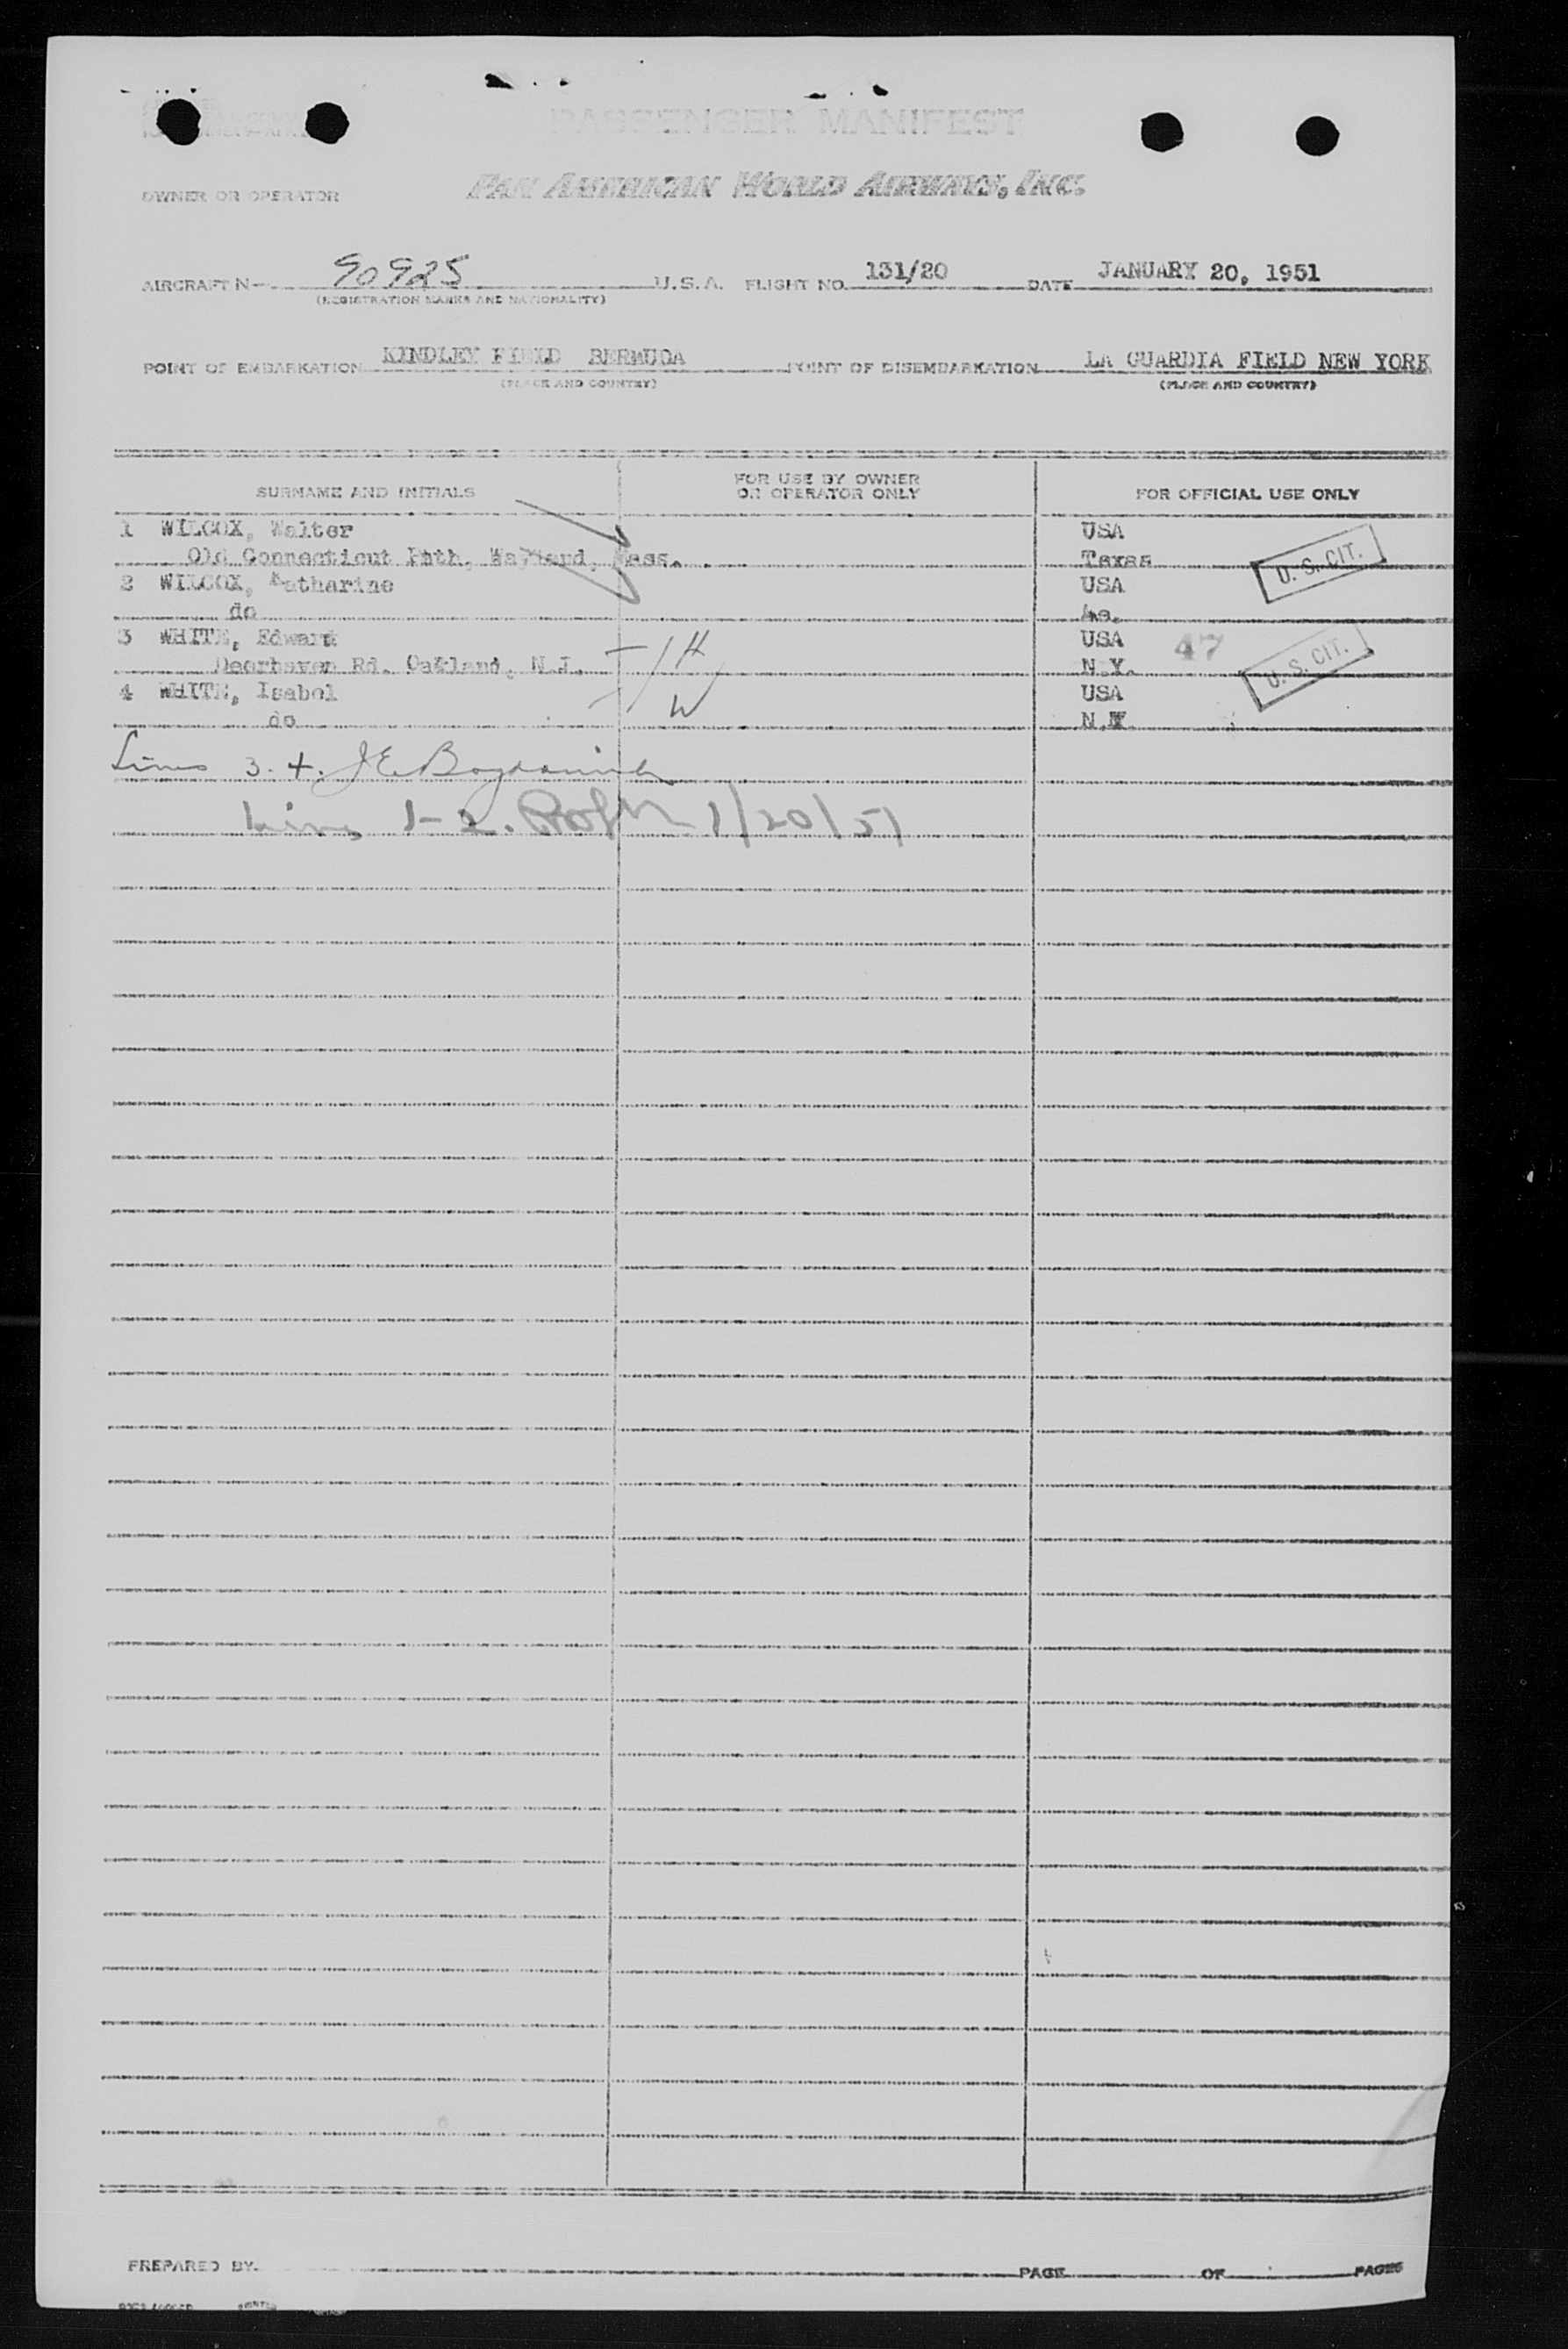 PASSENGER MANIFEST
OWNER OR OPERATOR PAN AMERICAN WORLD AIRWAYS, INC.
AIRCRAFT N- 90925 U.S.A. FLIGHT NO. 131/20 DATE JANUARY 20, 1951
(REGISTRATION MARKS AND NATIONALITY)
POINT OF EMBARKATION KINDLEY FIELD BERMUDA POINT OF DISEMBARKATION LA GUARDIA FIELD NEW YORK
(PLACE AND COUNTRY) (PLACE AND COUNTRY)
SURNAME AND INITIALS FOR USE BY OWNER OR OPERATOR ONLY FOR OFFICIAL USE ONLY
1 WILCOX, Walter USA
Old Connecticut Path, Wayland, Mass. Texas U. S. CIT.
2 WILCOX, Katharine USA
do
3 WHITE, Edward H USA 47
Deerhaven Rd. Oakland, N.J. N.Y. U. S. CIT.
4 WHITE, Isabel W USA
do N.Y.
Lines 3. 4.
Lines 1-2. 1/20/51
PREPARED BY. PAGE OF PAGES